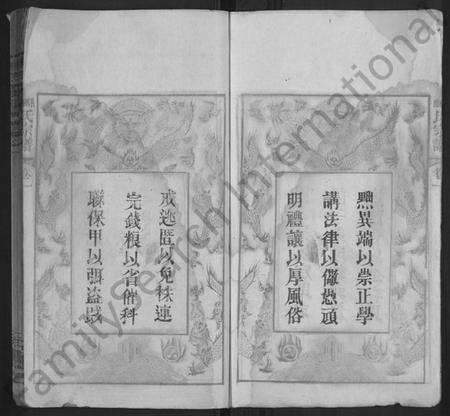 黜異端以崇正學
講法律以儆愚頑
明禮讓以厚風俗
戒逃匿以免株連
完錢粮以省催科
聯保甲以弭盜賊
familysearch International